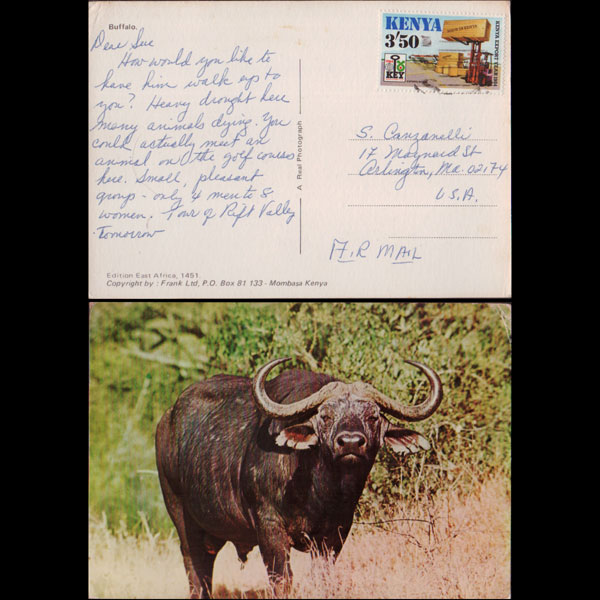 Buffalo.
Dear Sue
How would you like to
have him walk up to
you? Heavy drought here
many animals dying. You
could actually meet an
animal on the golf courses
here. Small, pleasant
group - only 4 men to 8
women. Tour of Rift Valley
Tomorrow
Edition East Africa, 1451.
Copyright by: Frank Ltd, P.O. Box 81 133 - Mombasa Kenya
A Real Photograph
KENYA
3/50
KEY
KENYA EXPORT YEAR
S. Canzanelli
17 Maynard St
Arlington, Ma. 02174
U.S.A.
AIR MAIL